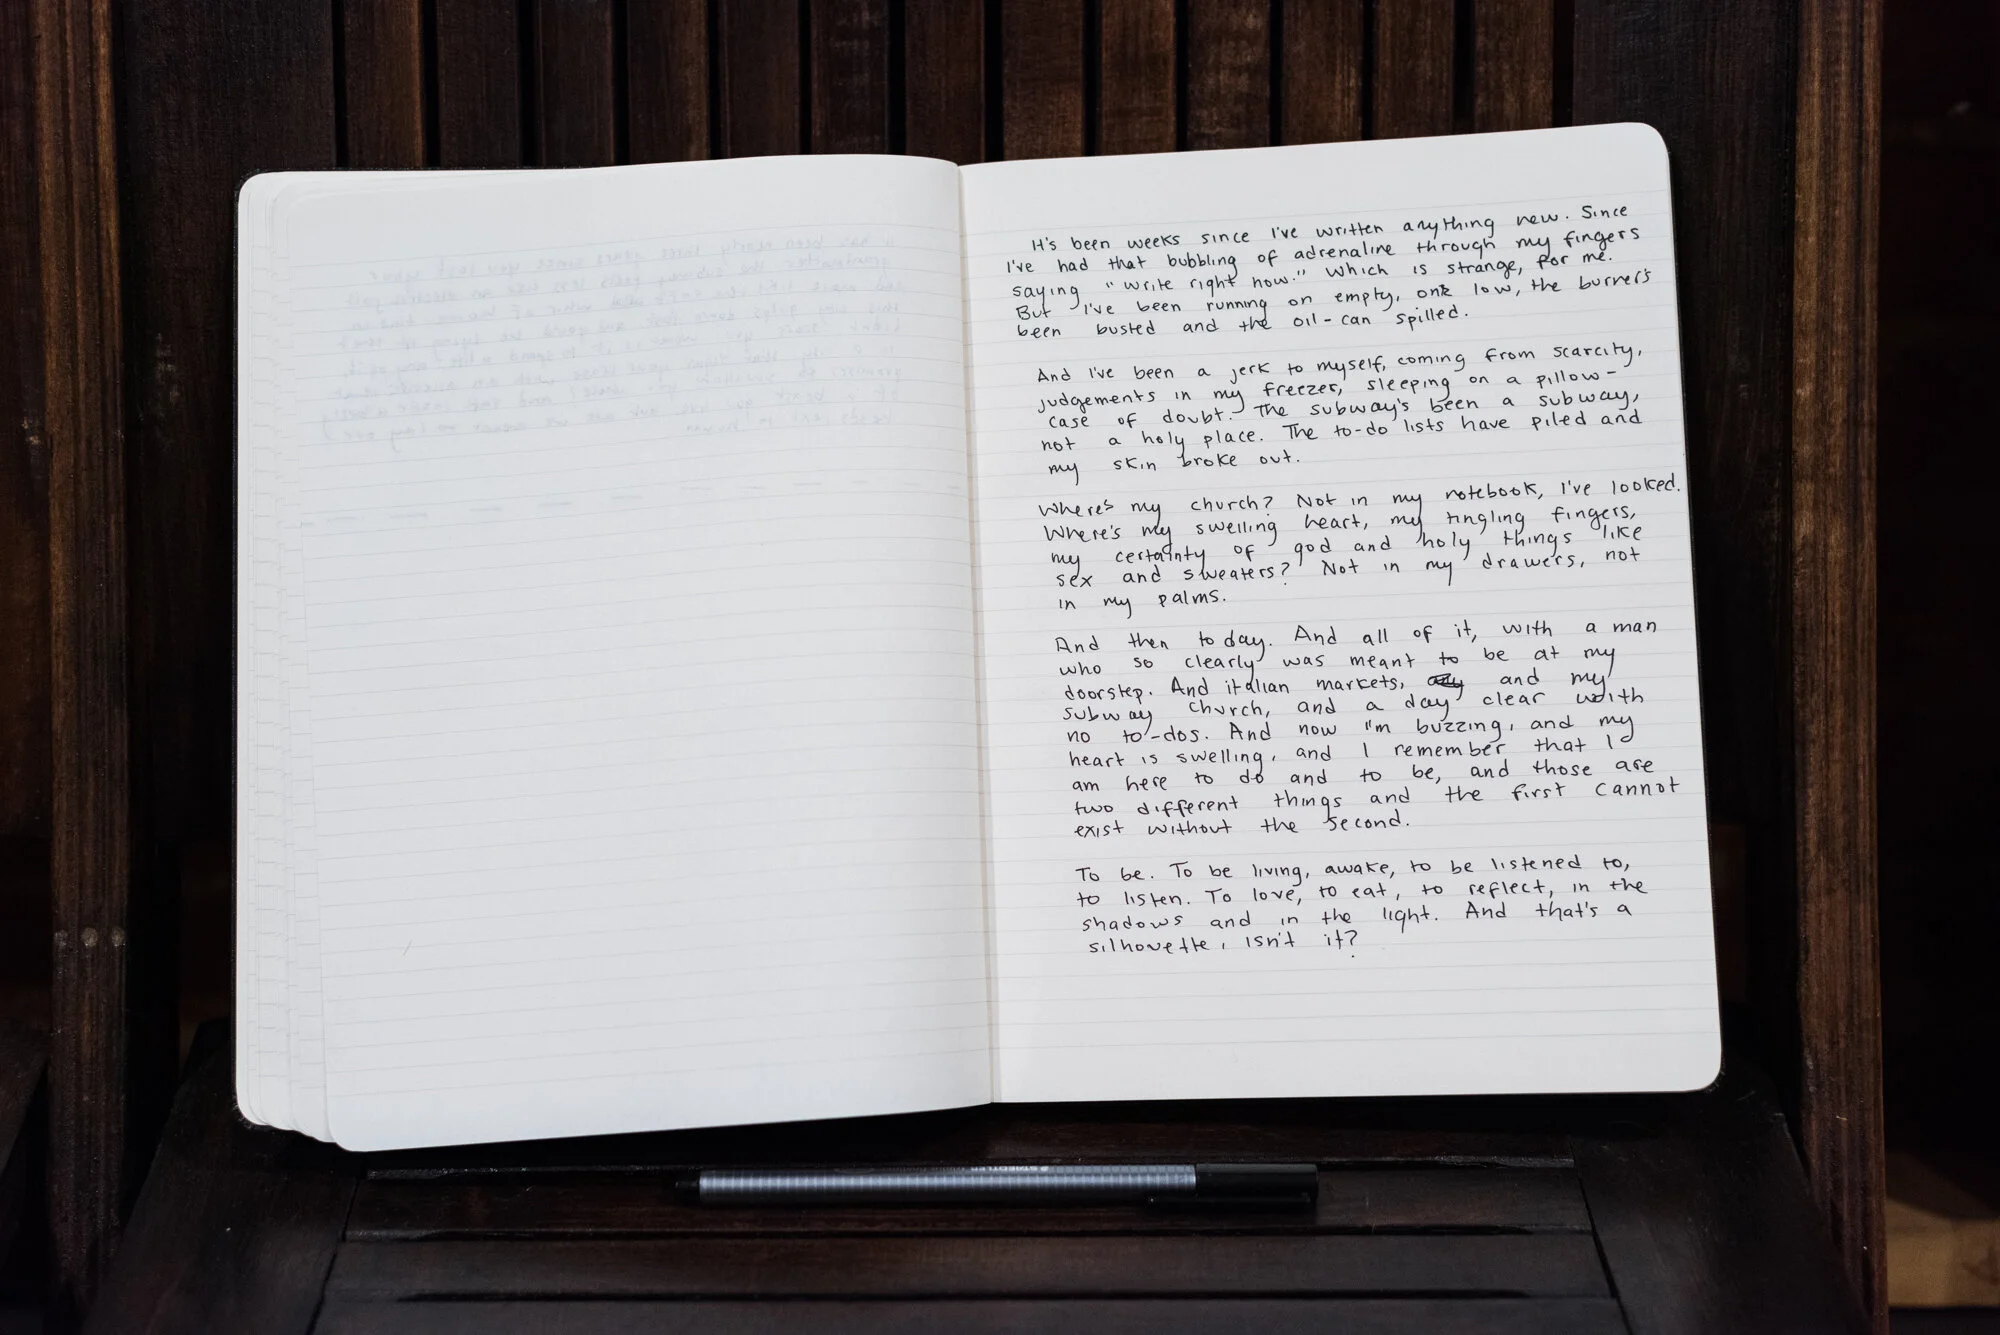 It's been weeks since I've written anything new. Since
I've had that bubbling of adrenaline through my fingers
saying "write right now." Which is strange, for me.
But I've been running on empty, low, the burner's
been busted and the oil-can spilled.
And I've been a jerk to myself, coming from scarcity,
judgements in my freezer, sleeping on a pillow-
case of doubt. The subway's been a subway,
not a holy place. The to-do lists have piled and
my skin broke out.
Where's my church? Not in my notebook, I've looked.
Where's my swelling heart, my tingling fingers,
my certainty of god and holy things like
sex and sweaters? Not in my drawers, not
in my palms.
And then today. And all of it, with a man
who so clearly was meant to be at my
doorstep. And italian markets, and my
subway church, and a day clear with
no to-dos. And now I'm buzzing, and my
heart is swelling, and I remember that I
am here to do and to be, and those are
two different things and the first cannot
exist without the second.
To be. To be living, awake, to be listened to,
to listen. To love, to eat, to reflect, in the
shadows and in the light. And that's a
silhouette, isn't it?
STAEDTLER